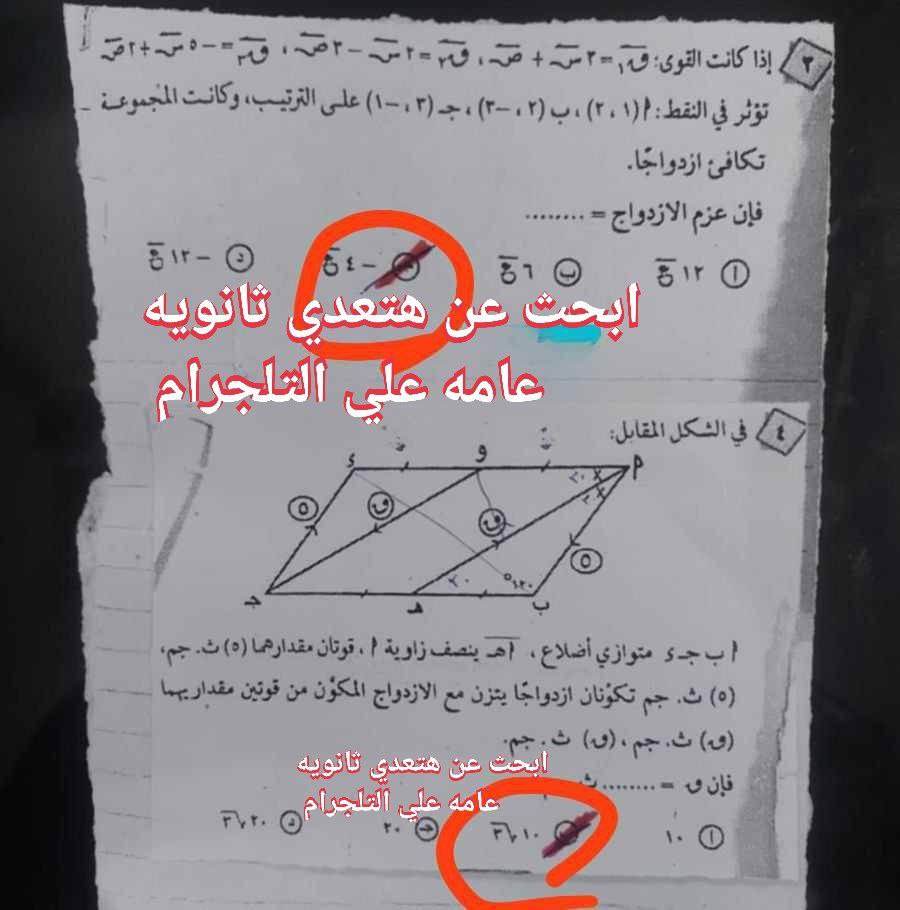 ٣ إذا كانت القوى: ق١ = ٣ س + ص ، ق٢ = ٢ س - ٣ ص ، ق٣ = - ٥ س + ٢ ص
تؤثر في النقط: ٢( ١ ، ٢) ، ب (٢ ، -٣) ، جـ (٣ ، -١) على الترتيب، وكانت المجموعة
تكافئ ازدواجًا.
فإن عزم الازدواج = ........
أ ١٢ ع ب ٦ ع - ٤ ع د - ١٢ ع
ابحث عن هتعدي ثانويه
عامه علي التلجرام
٤ في الشكل المقابل:
٢ و ٤
٣٠
٣٠
٥ ق ق ٥
٣٠ ١٢٠°
ب هـ جـ
٢ ب جـ ٤ متوازي أضلاع ، ٢هـ ينصف زاوية ٢ ، قوتان مقدارهما (٥) ث. جم،
(٥) ث. جم تكوّنان ازدواجًا يتزن مع الازدواج المكوّن من قوتين مقداريهما
(ق) ث. جم ، (ق) ث. جم.
ابحث عن هتعدي ثانويه
فإن ق = ........
عامه علي التلجرام
أ ١٠ ١٠√٣ جـ ٢٠ د ٢٠√٣